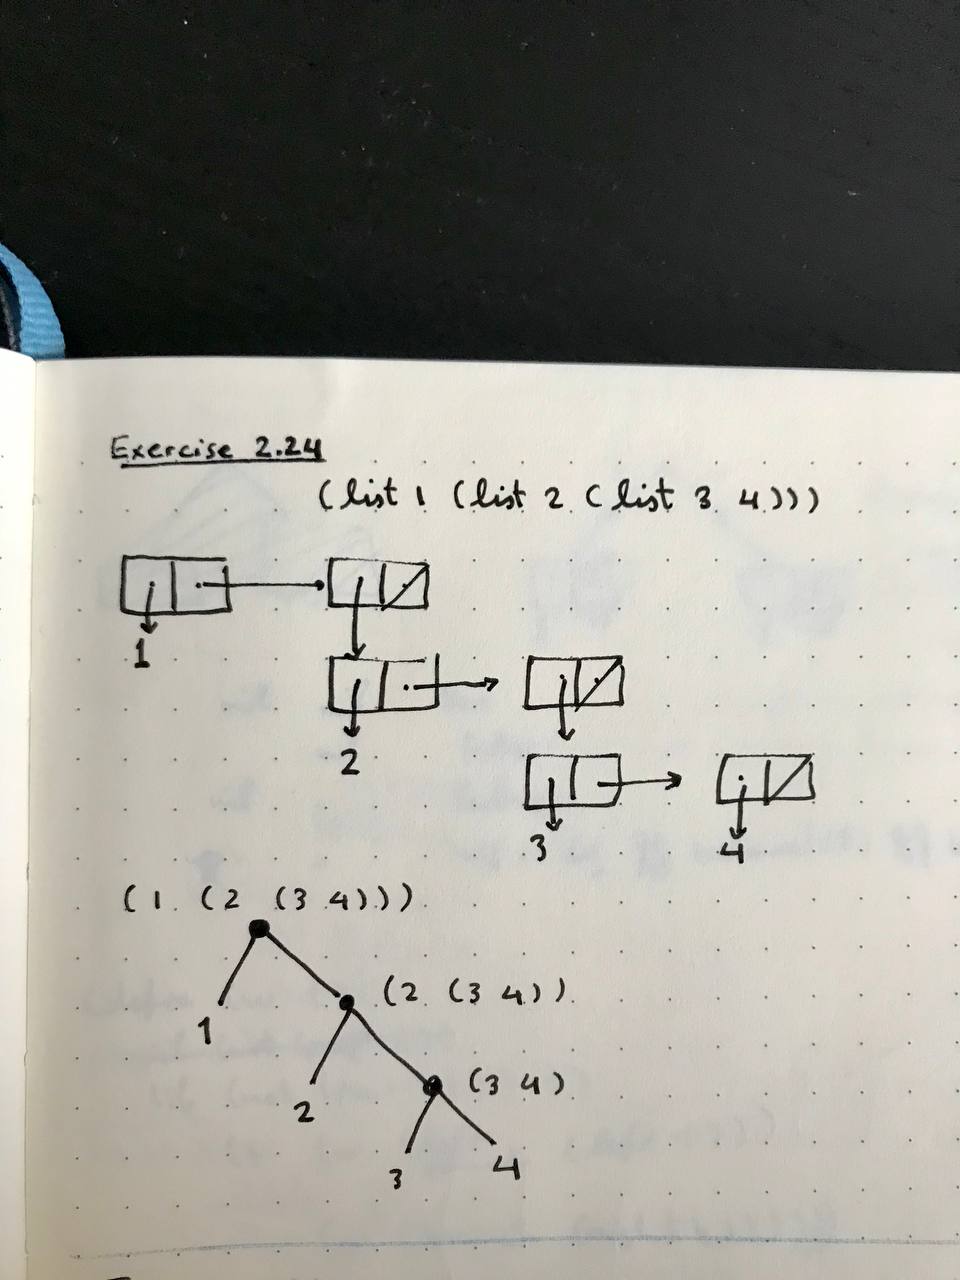 Exercise 2.24
(list 1 (list 2 (list 3 4)))
1
2
3 4
(1 (2 (3 4)))
(2 (3 4))
1
(3 4)
2
3 4